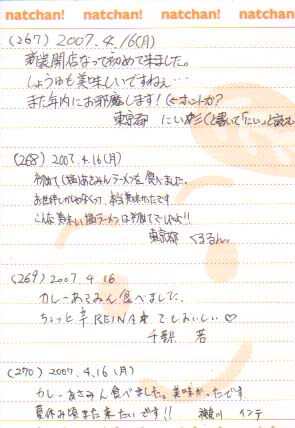 natchan! natchan! natchan! natchan!
(267) 2007.4.16(月)
新装開店なって初めて来ました。
しょうゆも美味しいですねぇ…
また年内にお邪魔します！(←ホントか?
東京都 にいがく(と書いて「にいっ」と読む
(268) 2007.4.16(月)
初めて(塩)あさみんラーメンを食べました。
お世辞じゃなく、本当美味かったです
こんな美味い塩ラーメンは初めてでしたよ!!
東京都 くるるん。
(269) 2007.4.16
カレーあさみん食べました。
ちょっと辛 REINA★ でもおいしい♡
千葉県 若
(270) 2007.4.16(月)
カレーあさみん食べました。美味かったです
夏休み頃また来たいです!!